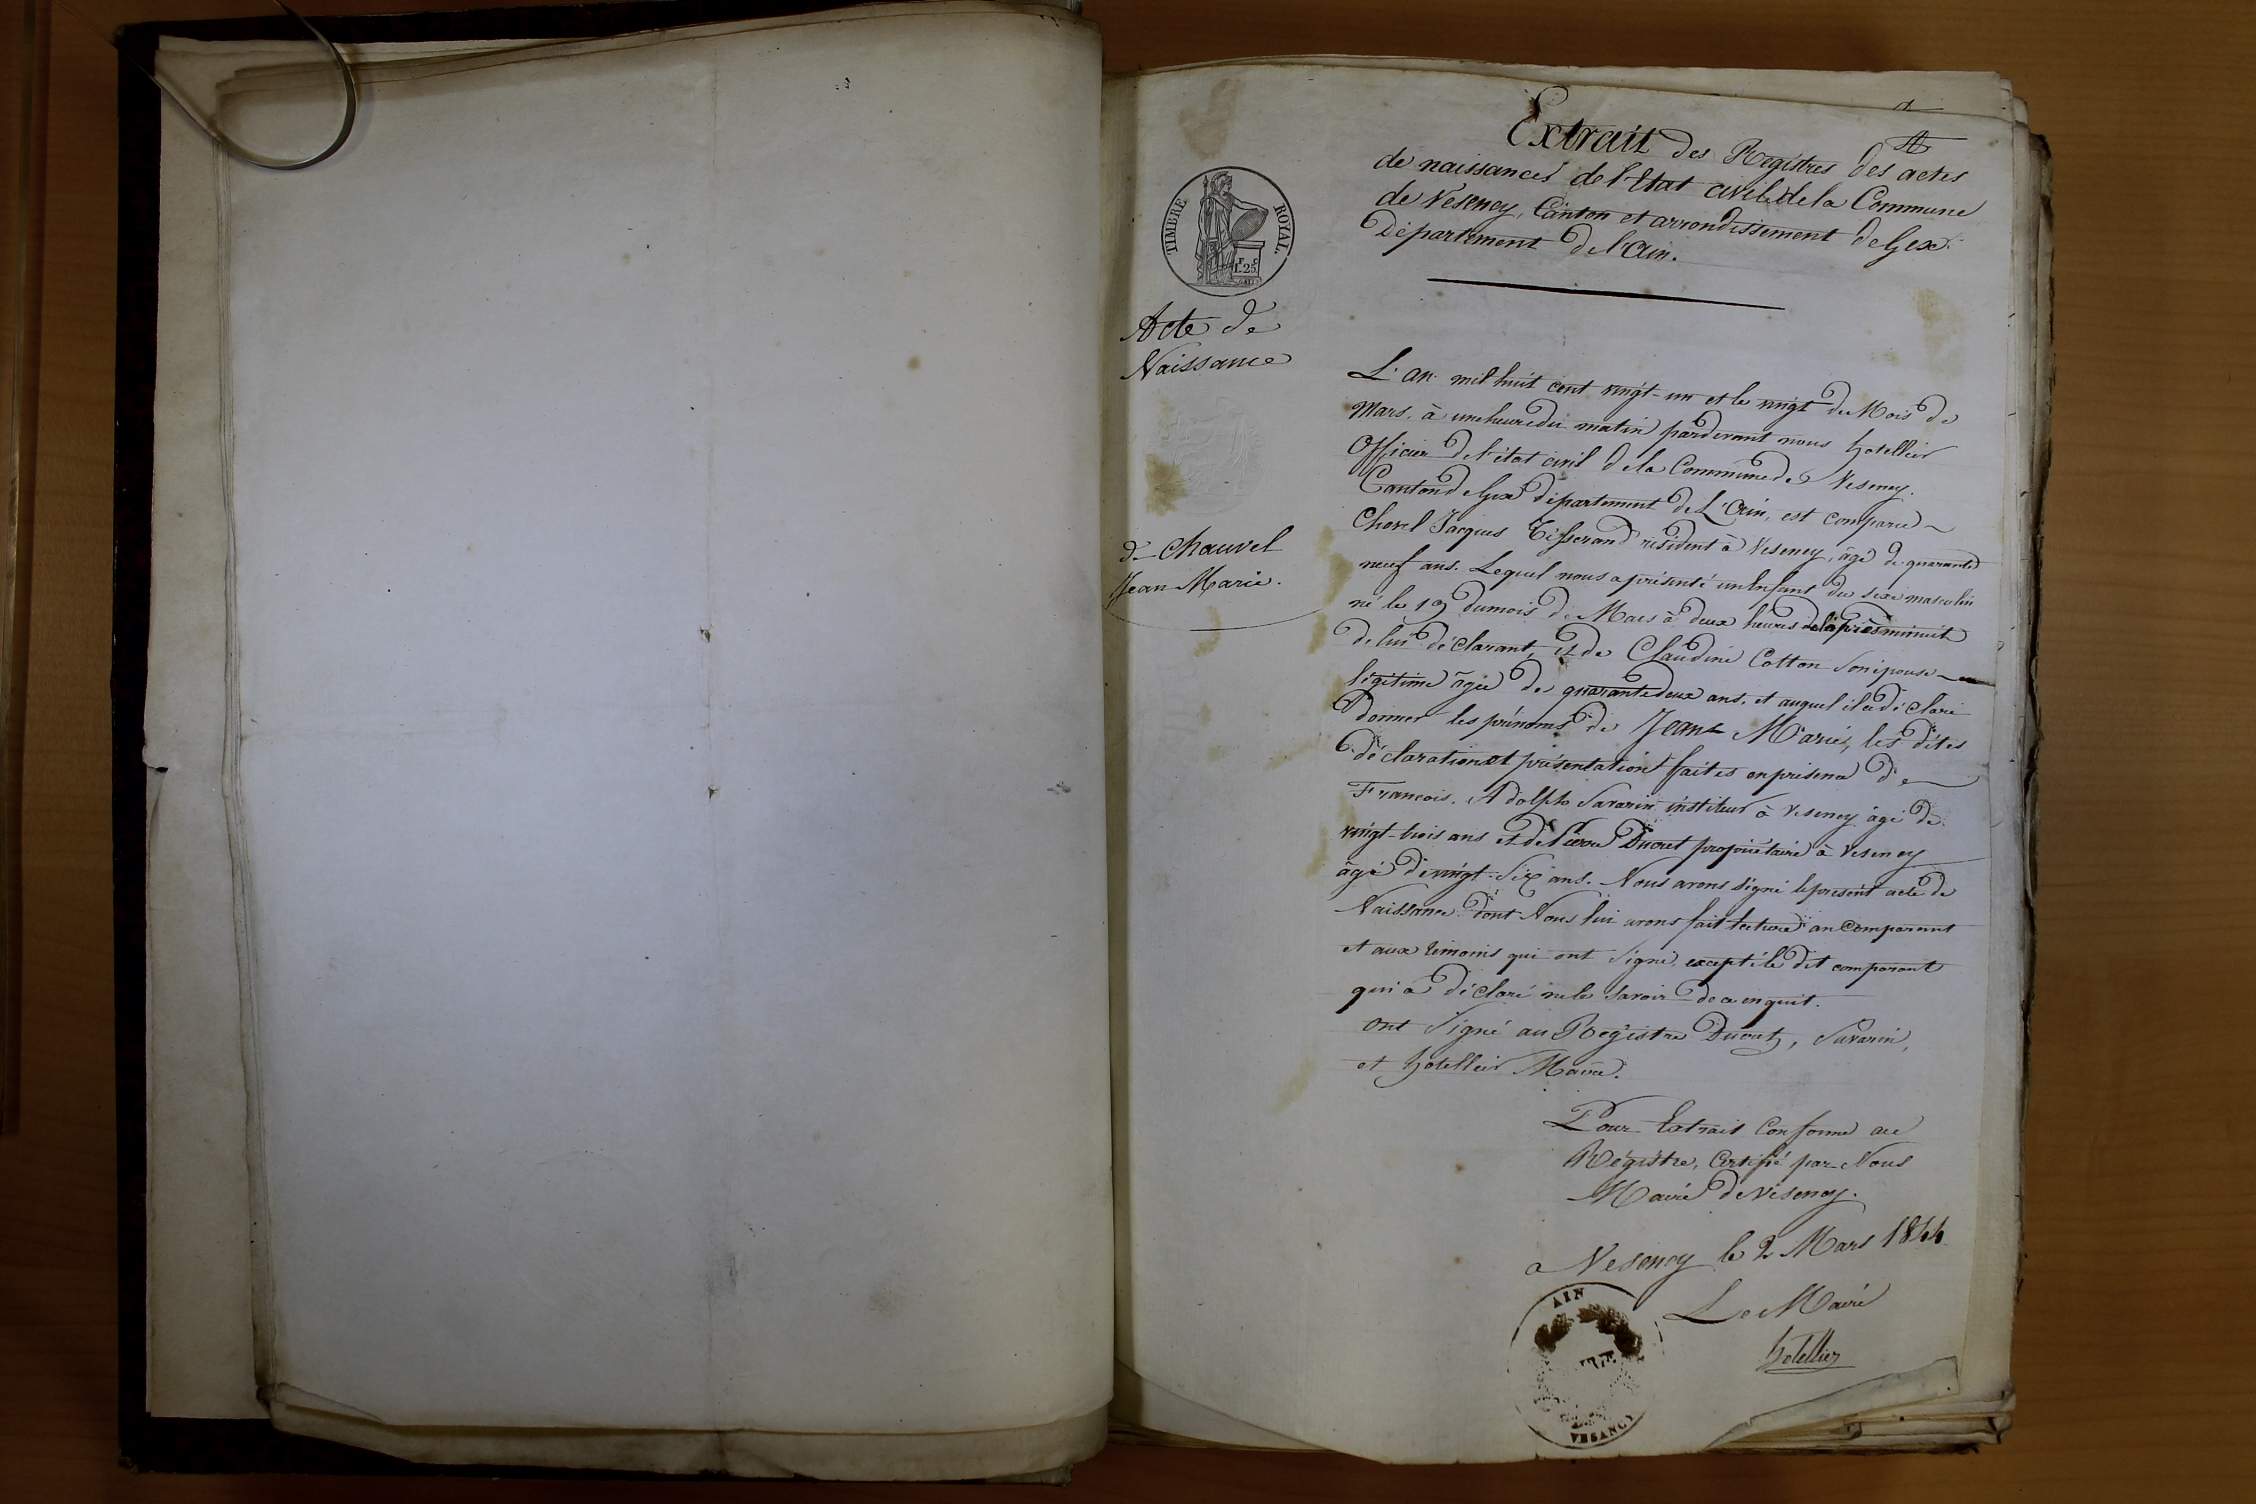 Extrait des Registres des actes
de naissances de l'Etat civil de la Commune
de Vesency, Canton et arrondissement de Gex
Département de l'Ain.
TIMBRE ROYAL.
1.25
Acte de
Naissance
de Chauvel
Jean Marie.
L'an mil huit cent vingt-un et le vingt du Mois de
Mars, à une heure du matin pardevant nous hotellier
Officier de l'état civil de la Commune de Vesency.
Canton de Gex département de L'Ain, est comparu
Chovel Jacques Tisserand résident à Vesency, âgé de quarante
neuf ans. Lequel nous a présenté un Enfant du sexe masculin
né le 19 du mois de Mars à deux heures de l'après minuit
de lui déclarant, et de Claudine Cotton son épouse
légitime âgée de quarante deux ans, et auquel il a déclaré
donner les prénoms de Jean Marie, les dites
déclaration et présentation faites en présence de
François. Adolph Savarin instituteur à Vesency âgé de
vingt-trois ans et de Pierre Ducret propriétaire à Vesency
âgé de vingt-six ans. Nous avons signé le présent acte de
Naissance dont Nous lui avons fait lecture au Comparant
et aux témoins qui ont signé, excepté le dit comparant
qui a déclaré ne le savoir de ce enquit.
ont signé au Registre Ducret, Savarin,
et hotellier Maire.
Pour Extrait Conforme au
Régistre, Certifié par Nous
Maire de Vesency.
a Vesency le 2 Mars 1844
Le Maire
hotellier
AIN
VESANCY